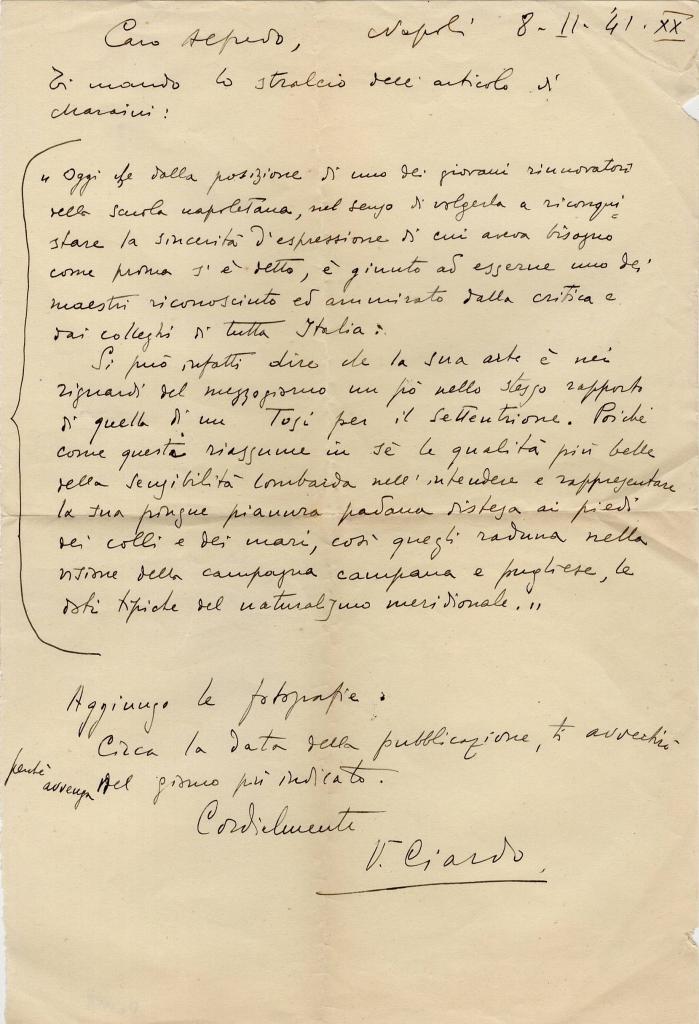 Caro Alfredo, Napoli 8-II-'41. XX
Ti mando lo stralcio dell'articolo di
Maraini:
"Oggi che dalla posizione di uno dei giovani rinnovatori
della scuola napoletana, nel senso di volgerla a riconqui=
stare la sincerità d'espressione di cui aveva bisogno
come prima s'è detto, è giunto ad esserne uno dei
maestri riconosciuto ed ammirato dalla critica e
dai colleghi di tutta Italia.
Si può infatti dire che la sua arte è nei
riguardi del mezzogiorno un pò nello stesso rapporto
di quella di un Tosi per il Settentrione. Poichè
come questa riassume in sè le qualità più belle
della sensibilità lombarda nell'intendere e rappresentare
la sua pingue pianura padana distesa ai piedi
dei colli e dei mari, così quegli raduna nella
visione della campagna campana e pugliese, le
doti tipiche del naturalismo meridionale."
Aggiungo le fotografie.
Circa la data della pubblicazione, ti avvertirò
perchè avvenga nel giorno più indicato.
Cordialmente
V. Ciardo.